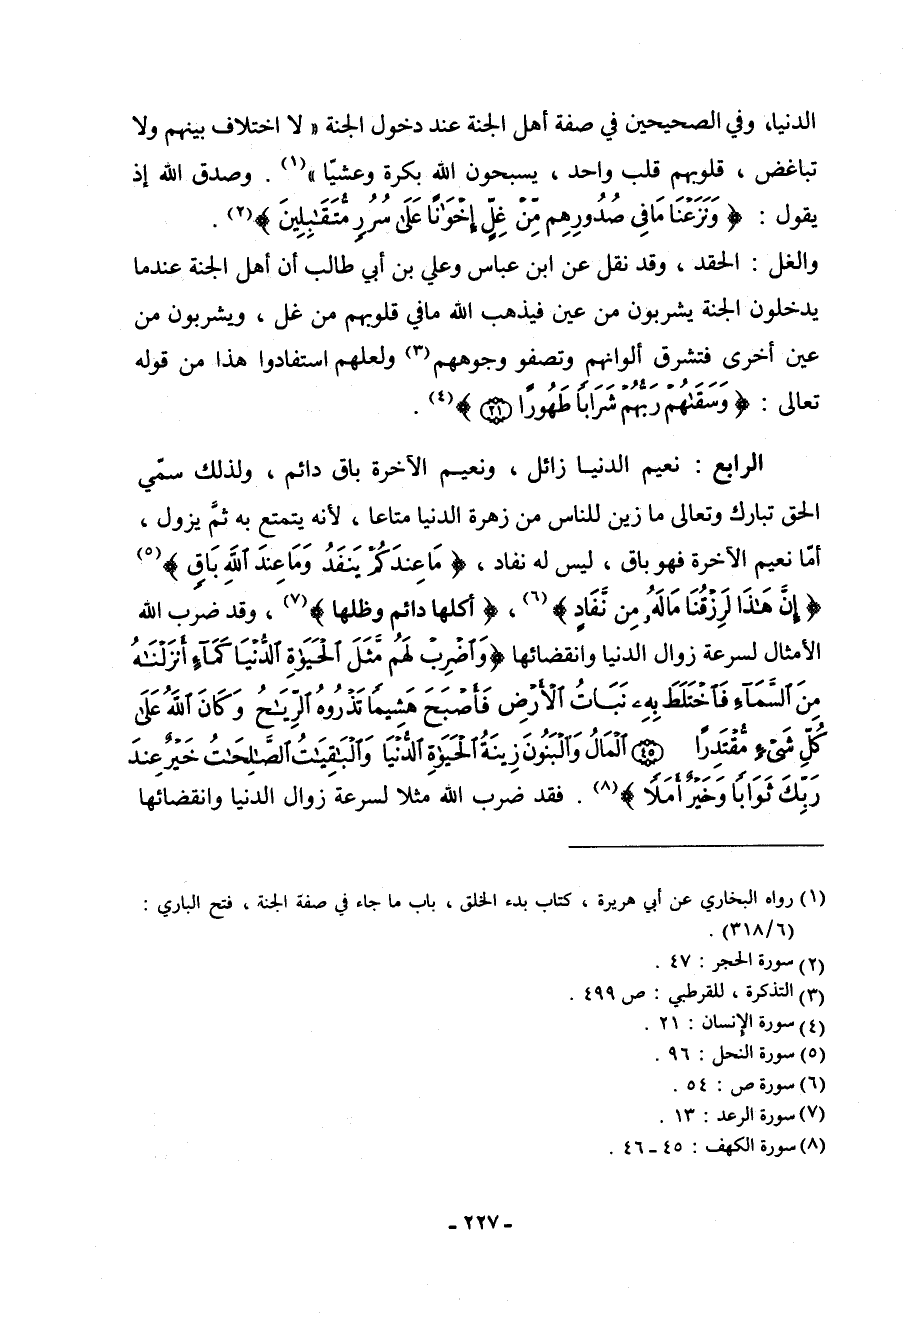 الدنيا، وفي الصحيحين في صفة أهل الجنة عند دخول الجنة « لا اختلاف بينهم ولا
تباغض ، قلوبهم قلب واحد ، يسبحون الله بكرة وعشيّا »(١) . وصدق الله إذ
يقول : ﴿ وَنَزَعْنَا مَا فِى صُدُورِهِم مِّنْ غِلٍّ إِخْوَٰنًا عَلَىٰ سُرُرٍ مُّتَقَٰبِلِينَ ﴾(٢) .
والغل : الحقد ، وقد نقل عن ابن عباس وعلي بن أبي طالب أن أهل الجنة عندما
يدخلون الجنة يشربون من عين فيذهب الله مافي قلوبهم من غل ، ويشربون من
عين أخرى فتشرق ألوانهم وتصفو وجوههم(٣) ولعلهم استفادوا هذا من قوله
تعالى : ﴿ وَسَقَىٰهُمْ رَبُّهُمْ شَرَابًا طَهُورًا ﴿٢١﴾ ﴾(٤) .
الرابع : نعيم الدنيا زائل ، ونعيم الآخرة باق دائم ، ولذلك سمّي
الحق تبارك وتعالى ما زين للناس من زهرة الدنيا متاعا ، لأنه يتمتع به ثمَّ يزول ،
أمّا نعيم الآخرة فهو باق ، ليس له نفاد ، ﴿ مَا عِندَكُمْ يَنفَدُ وَمَا عِندَ ٱللَّهِ بَاقٍ ﴾(٥)
﴿ إِنَّ هَٰذَا لَرِزْقُنَا مَالَهُۥ مِن نَّفَادٍ ﴾(٦) ، ﴿ أكلها دائم وظلها ﴾(٧) ، وقد ضرب الله
الأمثال لسرعة زوال الدنيا وانقضائها ﴿ وَٱضْرِبْ لَهُم مَّثَلَ ٱلْحَيَوٰةِ ٱلدُّنْيَا كَمَآءٍ أَنزَلْنَٰهُ
مِنَ ٱلسَّمَآءِ فَٱخْتَلَطَ بِهِۦ نَبَاتُ ٱلْأَرْضِ فَأَصْبَحَ هَشِيمًا تَذْرُوهُ ٱلرِّيَٰحُ وَكَانَ ٱللَّهُ عَلَىٰ
كُلِّ شَىْءٍ مُّقْتَدِرًا ﴿٤٥﴾ ٱلْمَالُ وَٱلْبَنُونَ زِينَةُ ٱلْحَيَوٰةِ ٱلدُّنْيَا وَٱلْبَٰقِيَٰتُ ٱلصَّٰلِحَٰتُ خَيْرٌ عِندَ
رَبِّكَ ثَوَابًا وَخَيْرٌ أَمَلًا ﴾(٨) . فقد ضرب الله مثلا لسرعة زوال الدنيا وانقضائها
(١) رواه البخاري عن أبي هريرة ، كتاب بدء الخلق ، باب ما جاء في صفة الجنة ، فتح الباري :
(٣١٨/٦) .
(٢) سورة الحجر : ٤٧ .
(٣) التذكرة ، للقرطبي : ص ٤٩٩ .
(٤) سورة الإنسان : ٢١ .
(٥) سورة النحل : ٩٦ .
(٦) سورة ص : ٥٤ .
(٧) سورة الرعد : ١٣ .
(٨) سورة الكهف : ٤٥ – ٤٦ .
- ٢٢٧ -